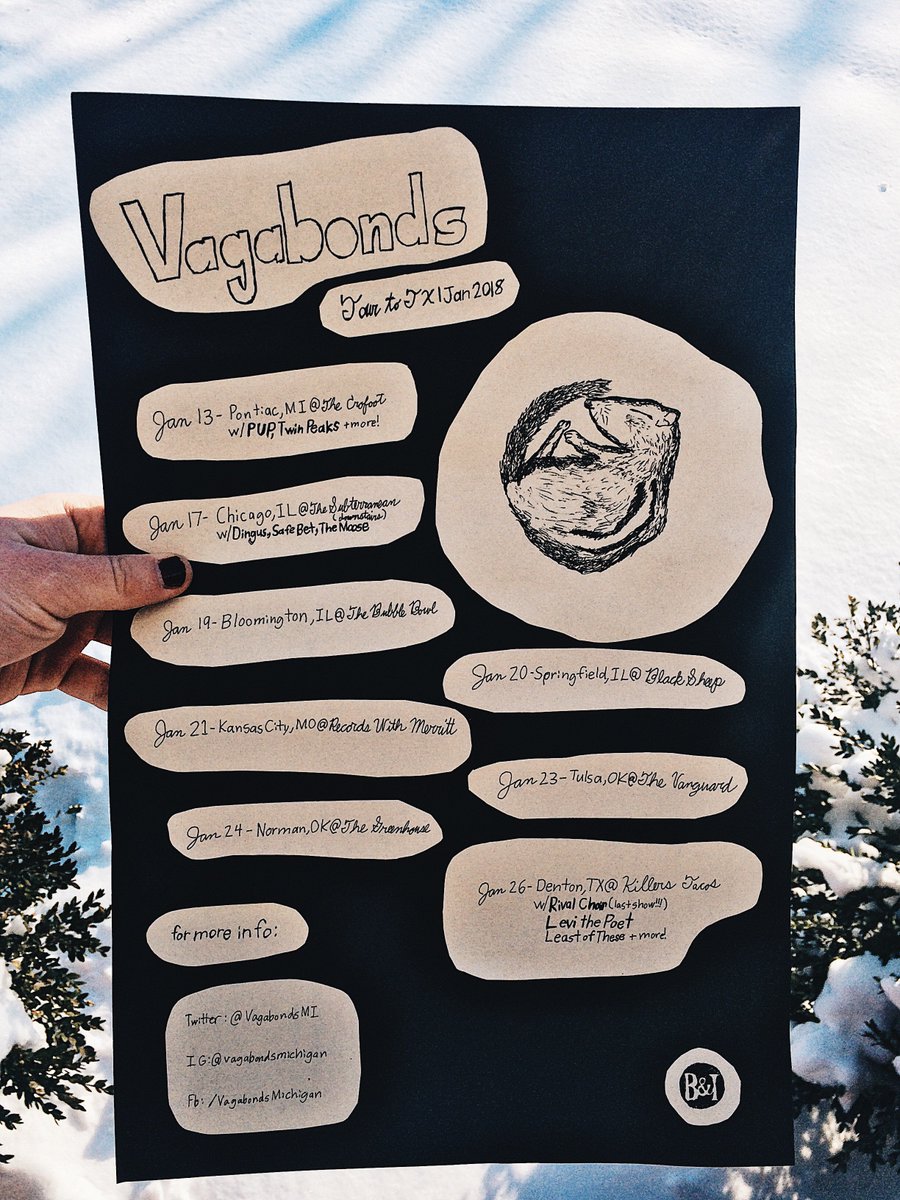 Vagabonds
Tour to TX | Jan 2018
Jan 13 - Pontiac, MI @ The Crofoot
w/ PUP, Twin Peaks + more!
Jan 17 - Chicago, IL @ The Subterranean
(downstairs)
w/ Dingus, Safe Bet, The Moose
Jan 19 - Bloomington, IL @ The Bubble Bowl
Jan 20 - Springfield, IL @ Black Sheep
Jan 21 - Kansas City, MO @ Records With Merritt
Jan 23 - Tulsa, OK @ The Vanguard
Jan 24 - Norman, OK @ The Greenhouse
Jan 26 - Denton, TX @ Killers Tacos
w/ Rival Choir (last show!!!)
Levi the Poet
Least of These + more!
for more info:
Twitter: @VagabondsMI
IG: @vagabondsmichigan
Fb: /VagabondsMichigan
B&I